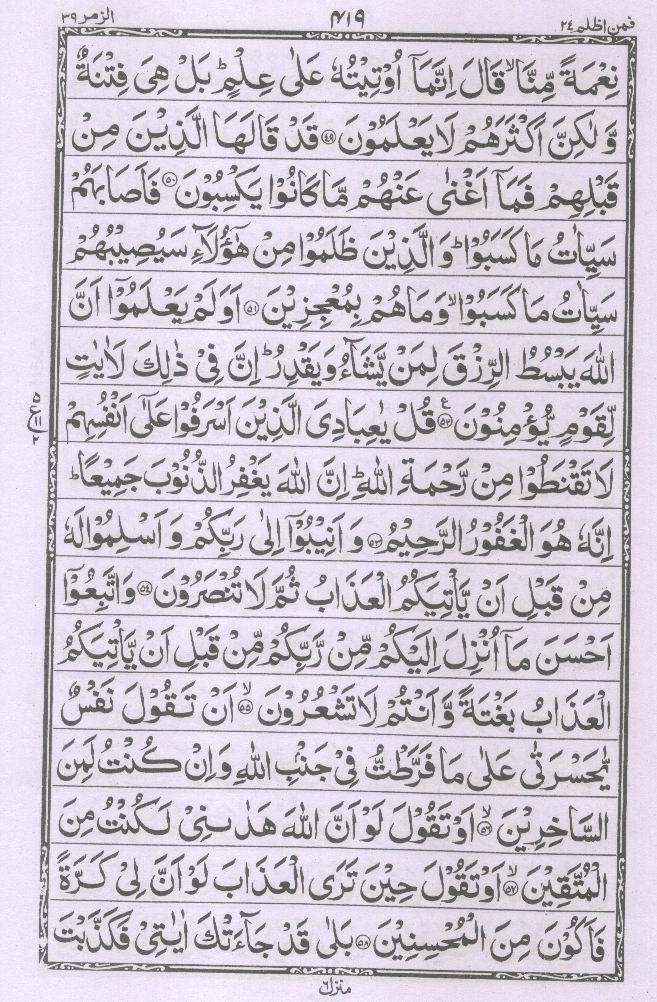 فمن اظلم ٢٤ ٤١٩ الزمر ٣٩
نِعْمَةً مِّنَّا ۙ قَالَ اِنَّمَاۤ اُوْتِيْتُهٗ عَلٰى عِلْمٍ ؕ بَلْ هِىَ فِتْنَةٌ
وَّلٰكِنَّ اَكْثَرَهُمْ لَا يَعْلَمُوْنَ ﴿۴۹﴾ قَدْ قَالَهَا الَّذِيْنَ مِنْ
قَبْلِهِمْ فَمَاۤ اَغْنٰى عَنْهُمْ مَّا كَانُوْا يَكْسِبُوْنَ ﴿۵۰﴾ فَاَصَابَهُمْ
سَيِّاٰتُ مَا كَسَبُوْا ؕ وَالَّذِيْنَ ظَلَمُوْا مِنْ هٰۤؤُلَآءِ سَيُصِيْبُهُمْ
سَيِّاٰتُ مَا كَسَبُوْا ۙ وَمَا هُمْ بِمُعْجِزِيْنَ ﴿۵۱﴾ اَوَلَمْ يَعْلَمُوْۤا اَنَّ
اللّٰهَ يَبْسُطُ الرِّزْقَ لِمَنْ يَّشَآءُ وَيَقْدِرُ ؕ اِنَّ فِىْ ذٰلِكَ لَاٰيٰتٍ
لِّقَوْمٍ يُّؤْمِنُوْنَ ﴿۵۲﴾ ع قُلْ يٰعِبَادِىَ الَّذِيْنَ اَسْرَفُوْا عَلٰٓى اَنْفُسِهِمْ
٥ ع ١١ ٢
لَا تَقْنَطُوْا مِنْ رَّحْمَةِ اللّٰهِ ؕ اِنَّ اللّٰهَ يَغْفِرُ الذُّنُوْبَ جَمِيْعًا ؕ
اِنَّهٗ هُوَ الْغَفُوْرُ الرَّحِيْمُ ﴿۵۳﴾ وَاَنِيْبُوْۤا اِلٰى رَبِّكُمْ وَاَسْلِمُوْا لَهٗ
مِنْ قَبْلِ اَنْ يَّاْتِيَكُمُ الْعَذَابُ ثُمَّ لَا تُنْصَرُوْنَ ﴿۵۴﴾ وَاتَّبِعُوْۤا
اَحْسَنَ مَاۤ اُنْزِلَ اِلَيْكُمْ مِّنْ رَّبِّكُمْ مِّنْ قَبْلِ اَنْ يَّاْتِيَكُمُ
الْعَذَابُ بَغْتَةً وَّاَنْتُمْ لَا تَشْعُرُوْنَ ﴿۵۵﴾ ۙ اَنْ تَقُوْلَ نَفْسٌ
يّٰحَسْرَتٰى عَلٰى مَا فَرَّطْتُّ فِىْ جَنْۢبِ اللّٰهِ وَاِنْ كُنْتُ لَمِنَ
السَّاخِرِيْنَ ﴿۵۶﴾ ۙ اَوْ تَقُوْلَ لَوْ اَنَّ اللّٰهَ هَدٰىنِىْ لَكُنْتُ مِنَ
الْمُتَّقِيْنَ ﴿۵۷﴾ ۙ اَوْ تَقُوْلَ حِيْنَ تَرَى الْعَذَابَ لَوْ اَنَّ لِىْ كَرَّةً
فَاَكُوْنَ مِنَ الْمُحْسِنِيْنَ ﴿۵۸﴾ بَلٰى قَدْ جَآءَتْكَ اٰيٰتِىْ فَكَذَّبْتَ
منزل ٦